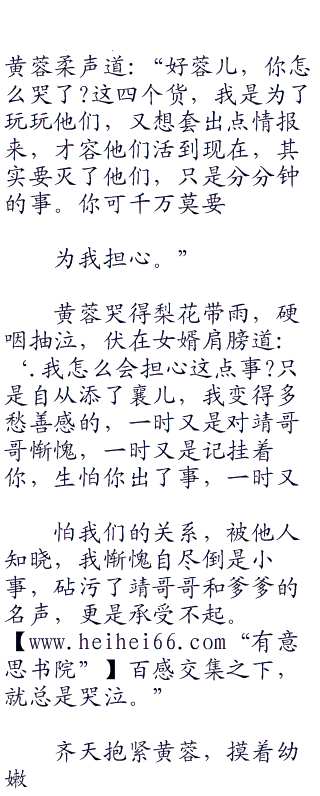 黄蓉柔声道：“好蓉儿，你怎
么哭了?这四个货，我是为了
玩玩他们，又想套出点情报
来，才容他们活到现在，其
实要灭了他们，只是分分钟
的事。你可千万莫要
为我担心。”
黄蓉哭得梨花带雨，硬
咽抽泣，伏在女婿肩膀道：
‘.我怎么会担心这点事?只
是自从添了襄儿，我变得多
愁善感的，一时又是对靖哥
哥惭愧，一时又是记挂着
你，生怕你出了事，一时又
怕我们的关系，被他人
知晓，我惭愧自尽倒是小
事，砧污了靖哥哥和爹爹的
名声，更是承受不起。
【www.heihei66.com“有意
思书院”】百感交集之下，
就总是哭泣。”
齐天抱紧黄蓉，摸着幼
嫩